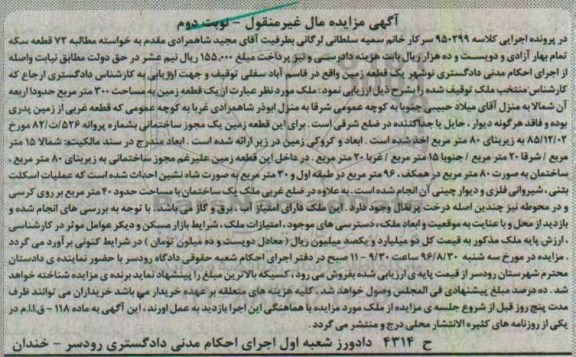 آگهی مزایده مال غیرمنقول - نوبت دوم
در پرونده اجرایی کلاسه ۹۵۰۲۹۹ سرکار خانم سمیه سلطانی لرگانی بطرفیت آقای مجید شاهمرادی مقدم به خواسته مطالبه ۷۲ قطعه سکه
تمام بهار آزادی و دویست و ده هزار ریال بابت هزینه دادرسی و نیز پرداخت مبلغ ۱۵۵,۰۰۰ ریال نیم عشر در حق دولت مطابق نیابت واصله
از اجرای احکام مدنی دادگستری نوشهر یک قطعه زمین واقع در قاسم آباد سفلی توقیف و جهت ارزیابی به کارشناس دادگستری ارجاع که
کارشناس منتخب ملک توقیف شده را بشرح ذیل ارزیابی نمود: ملک مورد نظر عبارت از یک قطعه زمین به مساحت ۳۰۰ متر مربع حدودا اربعه
آن شمالا به منزل آقای میلاد حبیبی جنوبا به کوچه عمومی شرقا به منزل ابوذر شاهمرادی غربا به کوچه عمومی که قطعه غربی از زمین پدری
بوده و فاقد هرگونه دیوار، حایل یا جداکننده در ضلع شرقی است. برای این قطعه زمین یک مجوز ساختمانی بشماره پروانه ۵۲۶/ت/۸۲ مورخ
۸۵/۱۲/۰۲ به زیربنای ۸۰ متر مربع اخذ شده است. ابعاد و کروکی زمین در زیر ارائه شده است. ابعاد مندرج در سند مالکیت: شمالا ۱۵ متر
مربع / شرقا ۲۰ متر مربع / جنوبا ۱۵ متر مربع / غربا ۲۰ متر مربع. در داخل این قطعه زمین علیرغم مجوز ساختمانی به زیربنای ۸۰ متر مربع،
ساختمان به صورت ۸۰ متر مربع در همکف، ۹۶ متر مربع در طبقه اول و ۳۰ متر مربع به صورت شاه نشین احداث شده است که عملیات اسکلت
بتنی، شیروانی فلزی و دیوار چینی آن انجام شده است. به علاوه در ضلع غربی ملک یک ساختمان با مساحت حدود ۴۰ متر مربع بر روی کرسی
و در محوطه نیز چندین اصله درخت پرتقال وجود دارد. این ملک فارای امتیاز آب، برق و گاز می باشد. با توجه به بررسی های انجام شده و
بازدید از محل و با عنایت به موقعیت و ابعاد ملک، دسترسی های موجود، امتیازات ملک، شرایط بازار مسکن و دیگر عوامل موثر در کارشناسی
، ارزش پایه ملک مذکور به قیمت کل دو میلیارد و یکصد میلیون ریال (معادل دویست و ده میلیون تومان) در شرایط کنونی برآورد می گردد
. مزایده در مورخ سه شنبه ۹۶/۸/۳۰ ساعت ۹/۳۰ - ۱۱ صبح در دفتر اجرای احکام شعبه حقوقی دادگاه رودسر با حضور نماینده ی دادستان
محترم شهرستان رودسر از قیمت پایه ی ارزیابی شده بفروش می رود، کسیکه بالاترین مبلغ را پیشنهاد نماید برنده ی مزایده شناخته خواهد
شد. ده درصد مبلغ پیشنهادی فی المجلس وصول خواهد شد. کلیه هزینه های متعلقه بر عهده خریدار می باشد خریداران می توانند ظرف
مدت پنج روز قبل از شروع جلسه ی مزایده از ملک مورد مزایده با هماهنگی این اجرا بازدید به عمل آورند، این آگهی به ماده ۱۱۸ - ق.ا.ا.م در
یکی از روزنامه های کثیره الانتشار محلی درج و منتشر می گردد.
ح ۴۳۱۴ دادورز شعبه اول اجرای احکام مدنی دادگستری رودسر - خندان